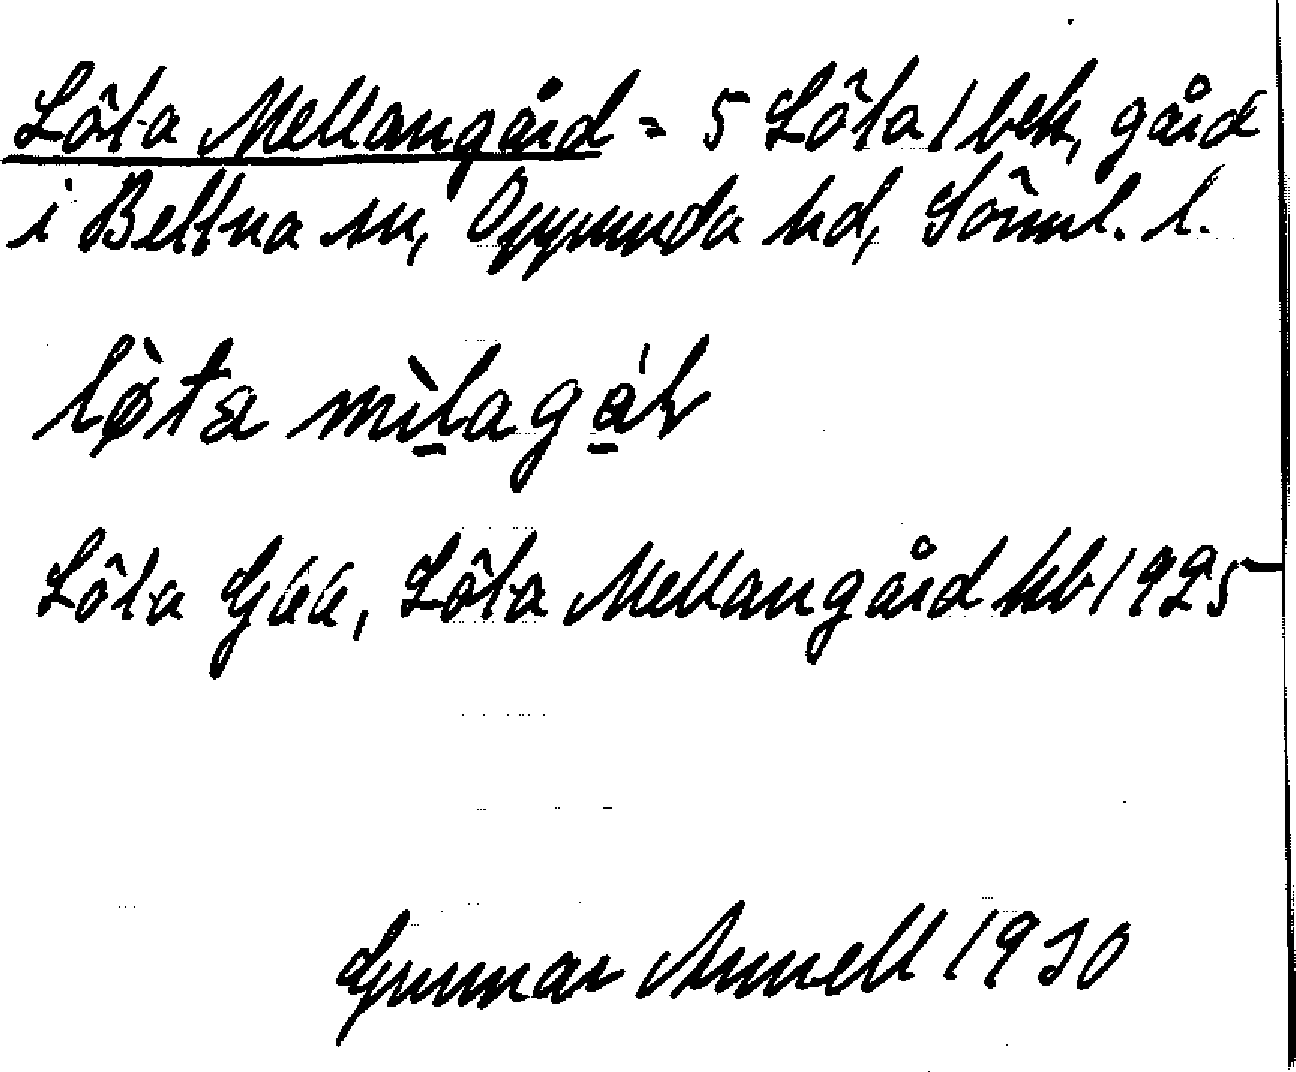 Löta Mellangård = 5 Löta 1 bek, gård
i Bettna sn, Oppunda hd, Söml. l.
lø̀ta mìlagár
Löta Löta Mellangård kb 1925
Gunnar Annell 1930